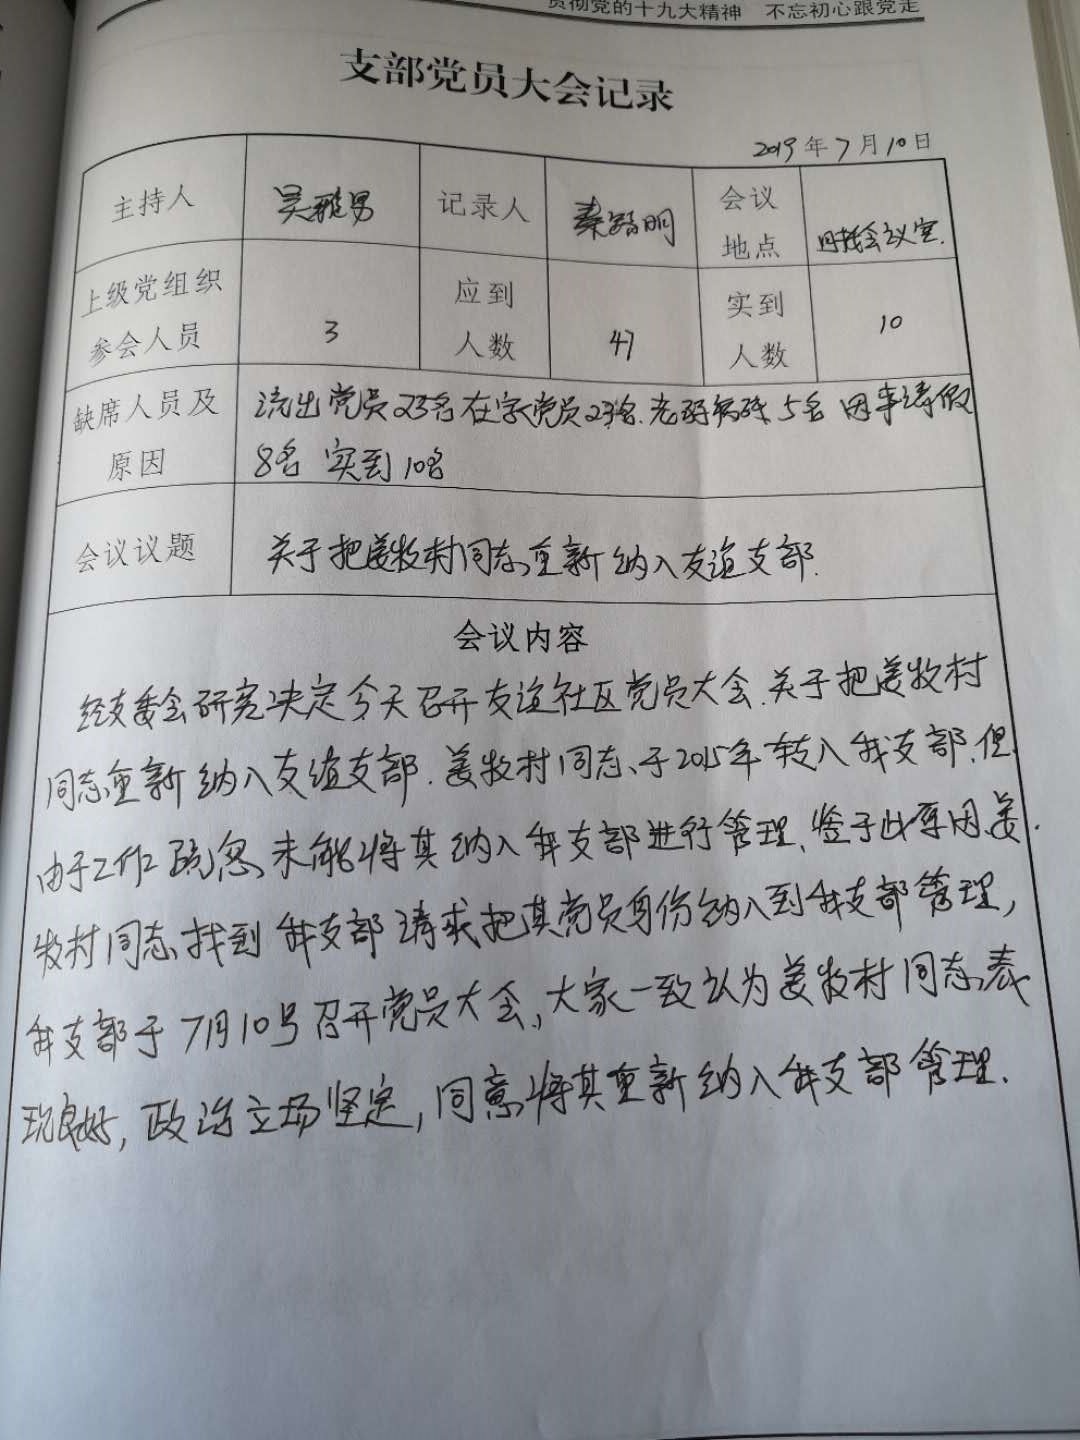 贯彻党的十九大精神 不忘初心跟党走
支部党员大会记录
2019年7月10日
主持人 吴雅男 记录人 秦 明 会议地点 会议室.
上级党组织参会人员 3 应到人数 47 实到人数 10
缺席人员及原因 流出党员23名 在家党员23名.老弱病残5名 因事请假
8名 实到10名
会议议题 关于把姜牧村同志重新纳入友谊支部.
会议内容
经支委会研究决定今天召开友谊社区党员大会.关于把姜牧村
同志重新纳入友谊支部.姜牧村同志、于2015年转入我支部.但
由于工作疏忽未能将其纳入我支部进行管理.鉴于此原因.姜
牧村同志找到我支部请求把其党员身份纳入到我支部管理,
我支部于7月10号召开党员大会,大家一致认为姜牧村同志表
现良好,政治立场坚定,同意将其重新纳入我支部管理.